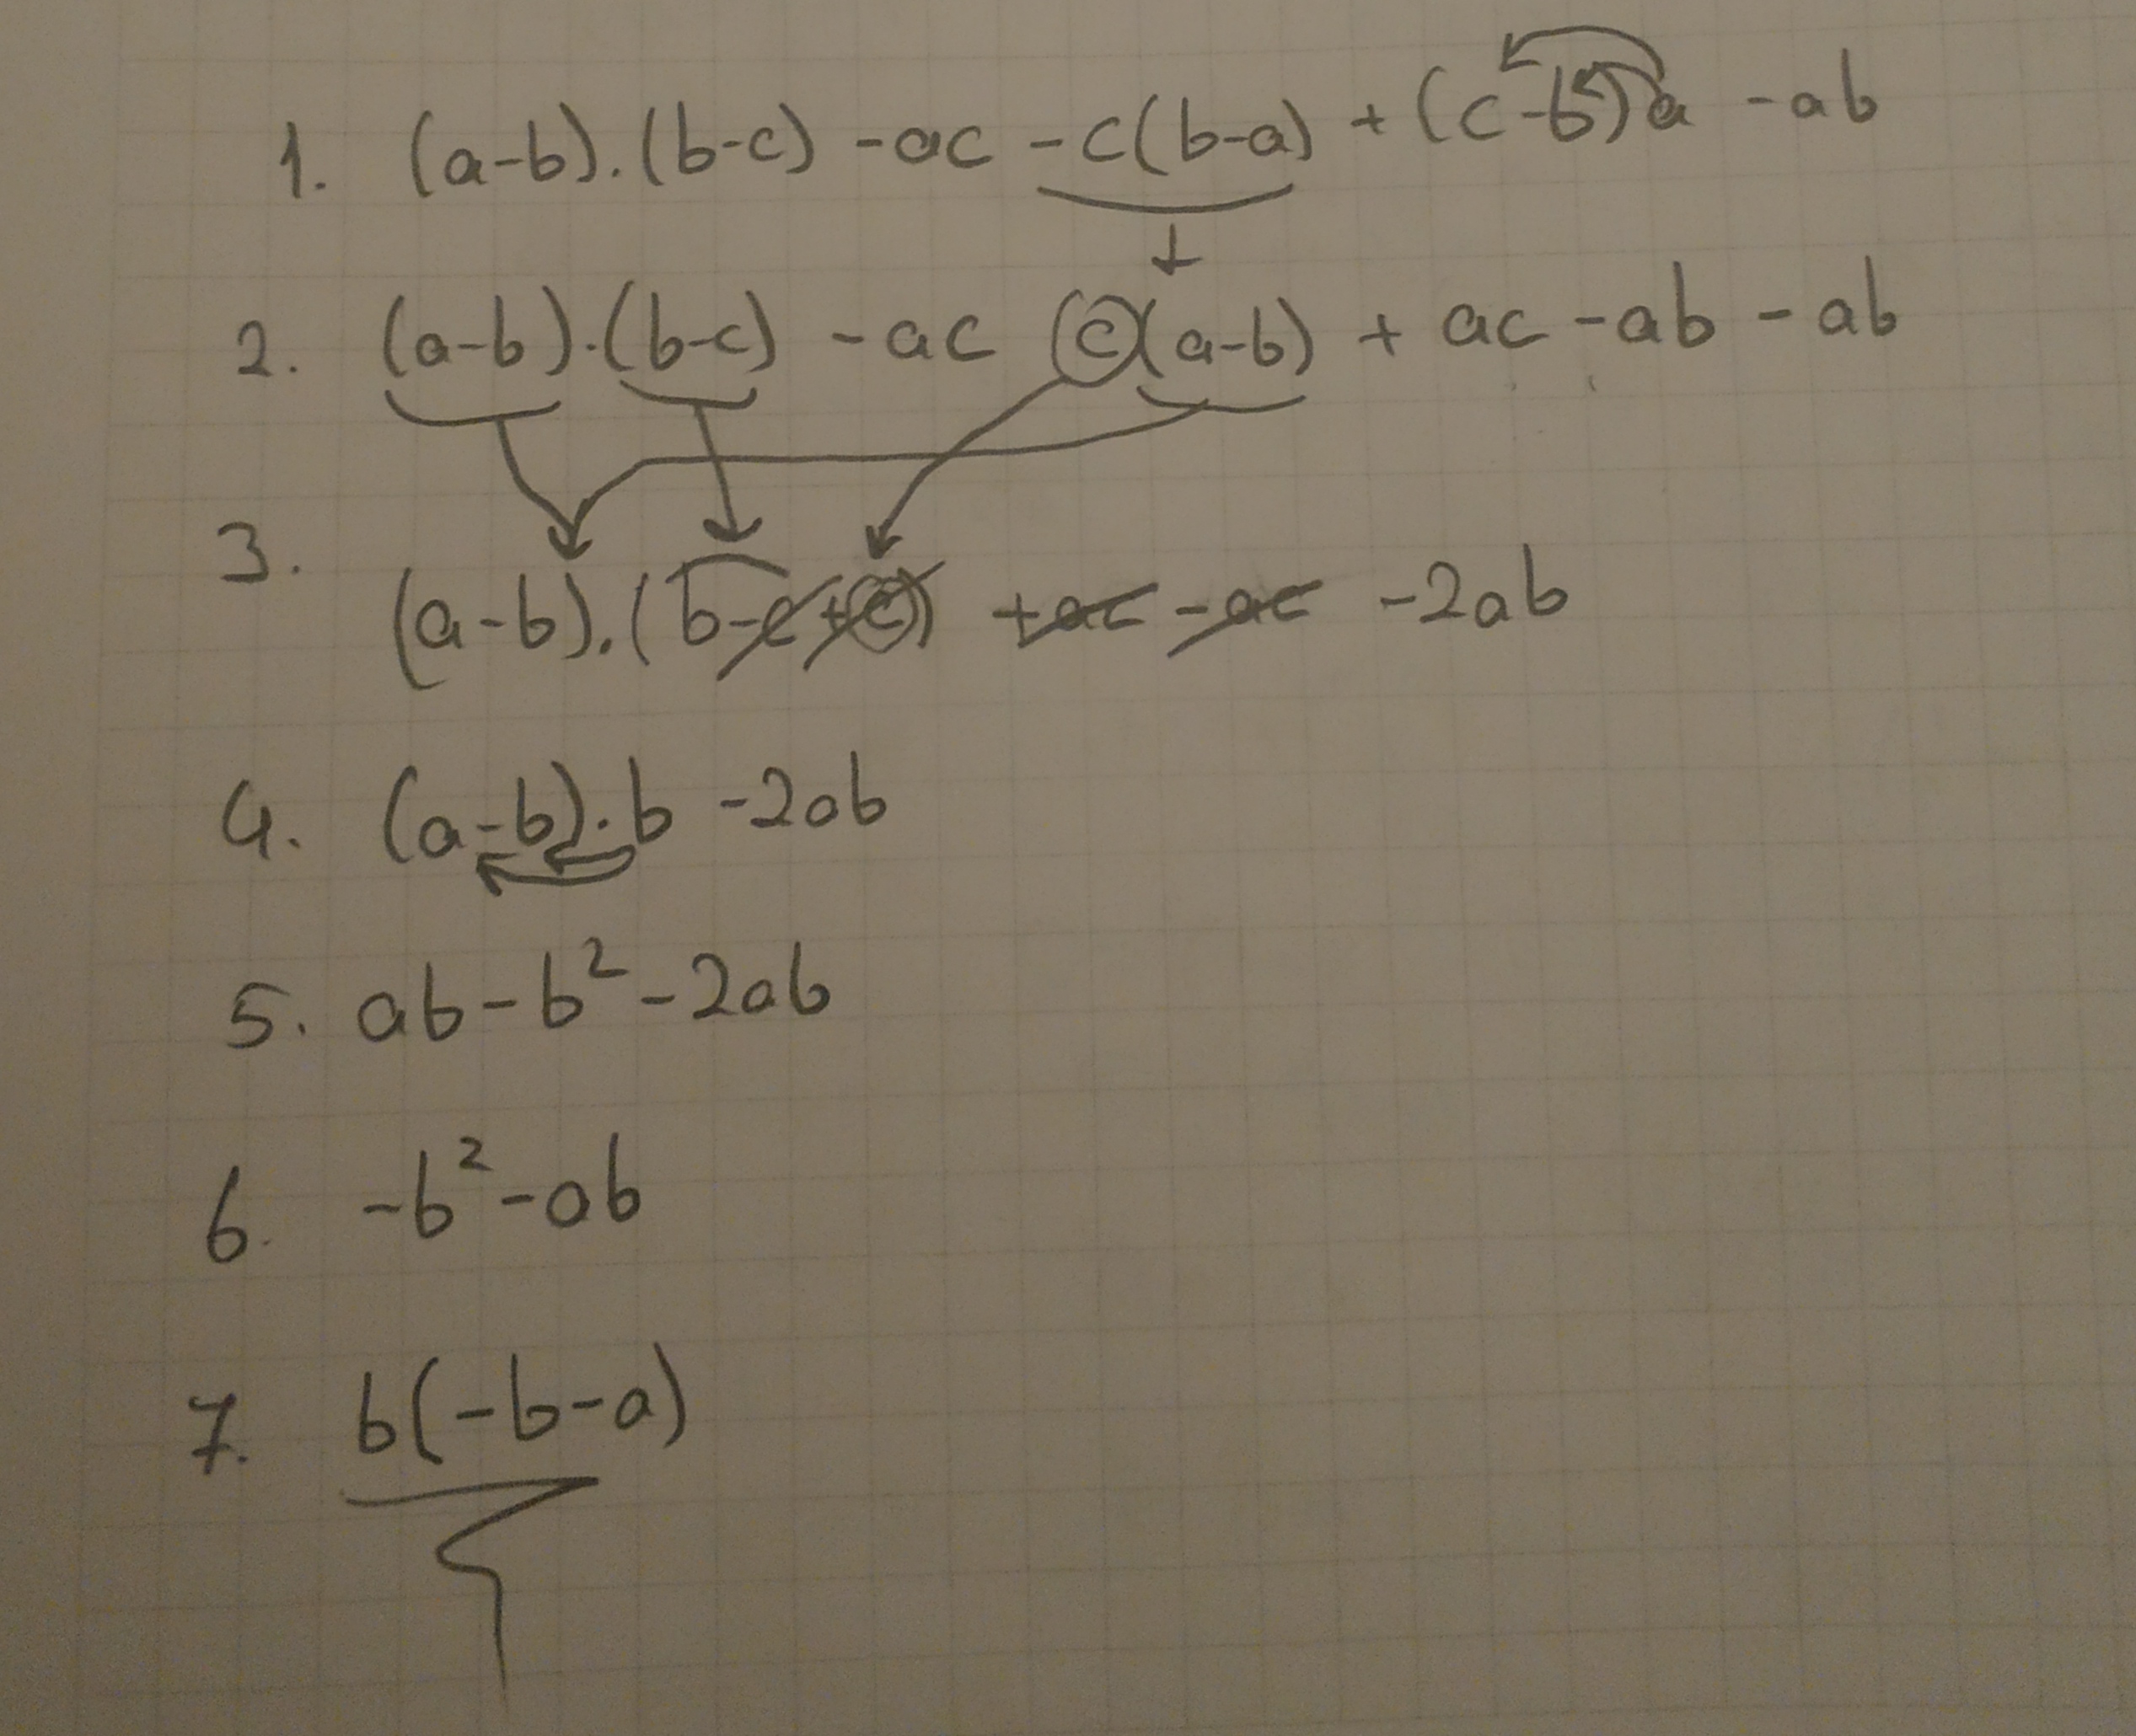 1. (a-b).(b-c) -ac -c(b-a) + (c-b)a -ab
2. (a-b).(b-c) -ac (c)(a-b) + ac -ab -ab
3. (a-b).(b-c+c) +ac -ac -2ab
4. (a-b).b -2ab
5. ab-b²-2ab
6. -b²-ab
7. b(-b-a)